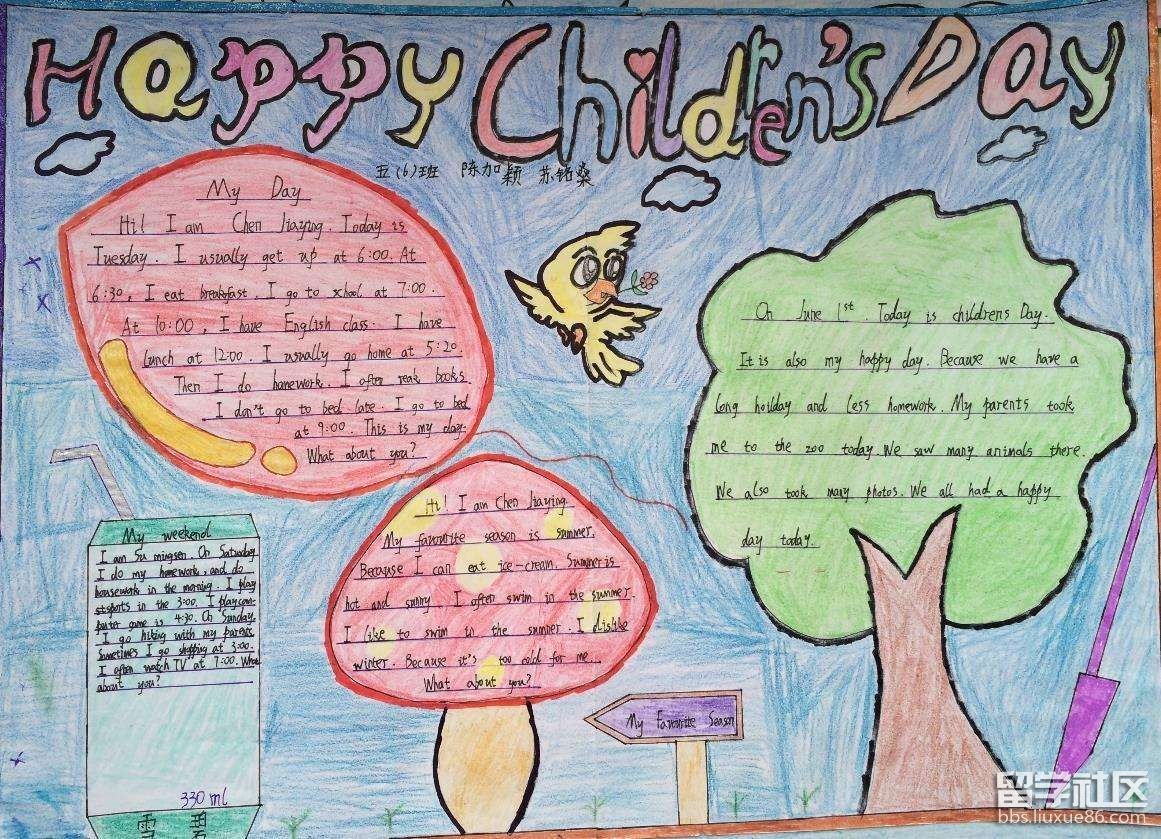 Happy Children's Day
五(6)班 陈加颖 苏铭燊
My Day
Hi! I am Chen Jiaying. Today is
Tuesday. I usually get up at 6:00. At
6:30, I eat breakfast. I go to school at 7:00.
At 10:00, I have English class. I have
lunch at 12:00. I usually go home at 5:20.
Then I do homework. I often reak books.
I don't go to bed late. I go to bed
at 9:00. This is my day.
What about you?
On June 1st. Today is childrens Day.
It is also my happy day. Because we have a
long hoilday and less homework. My parents took
me to the zoo today. We saw many animals there.
We also took many photos. We all had a happy
day today.
Hi! I am Chen Jiaying.
My favourite season is summer.
Because I can eat ice-cream. Summer is
hot and sunny. I often swim in the summer.
I like to swim in the summer. I dislike
winter. Because it's too cold for me.
What about you?
My Favourite Season
My weekend
I am Su mingsen. On Saturday
I do my homework, and do
housework in the morning. I play
sports in the 3:00. I play com-
puter game is 4:30. On Sunday.
I go hiking with my parents.
Sometimes I go shopping at 3:00.
I often watch TV at 7:00. What
about you?
330 ml
雪 碧
留学社区
bbs.liuxue86.com